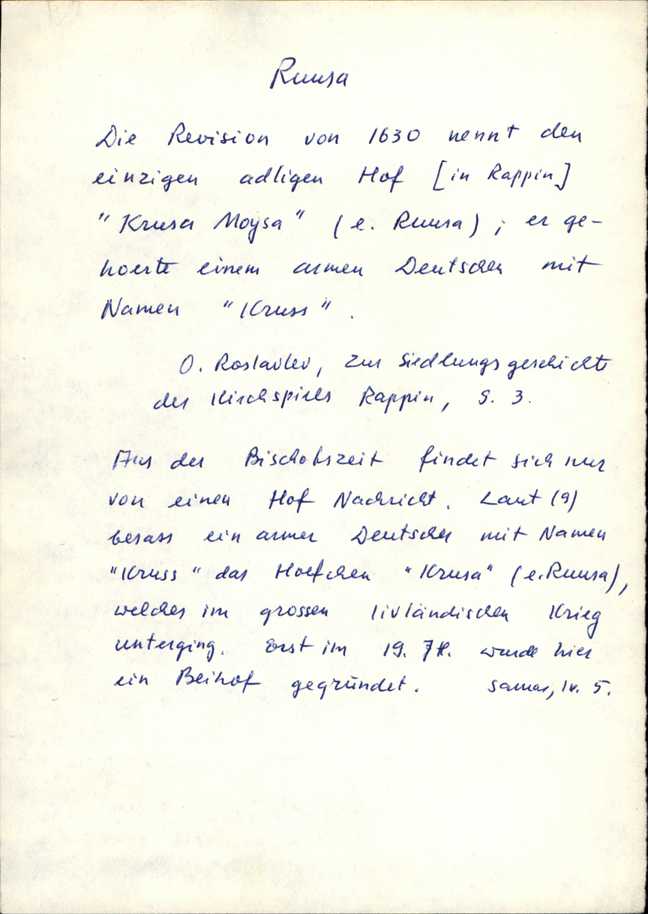 Ruusa
Die Revision von 1630 nennt den
einzigen adligen Hof [in Rappin]
"Krusa Moysa" (e. Ruusa); er ge-
hoerte einem armen Deutschen mit
Namen "Kruss".
O. Roslavlev, Zur Siedlungsgeschichte
des Kirchspiels Rappin, S. 3.
Aus der Bischofszeit findet sich nur
von einen Hof Nachricht. Laut (9)
besass ein armer Deutscher mit Namen
"Kruss" das Hoefchen "Krusa" (e. Ruusa),
welches im grossen livländischen Krieg
unterging. Erst im 19. Jh. wurde hier
ein Beihof gegründet. lv. 5.